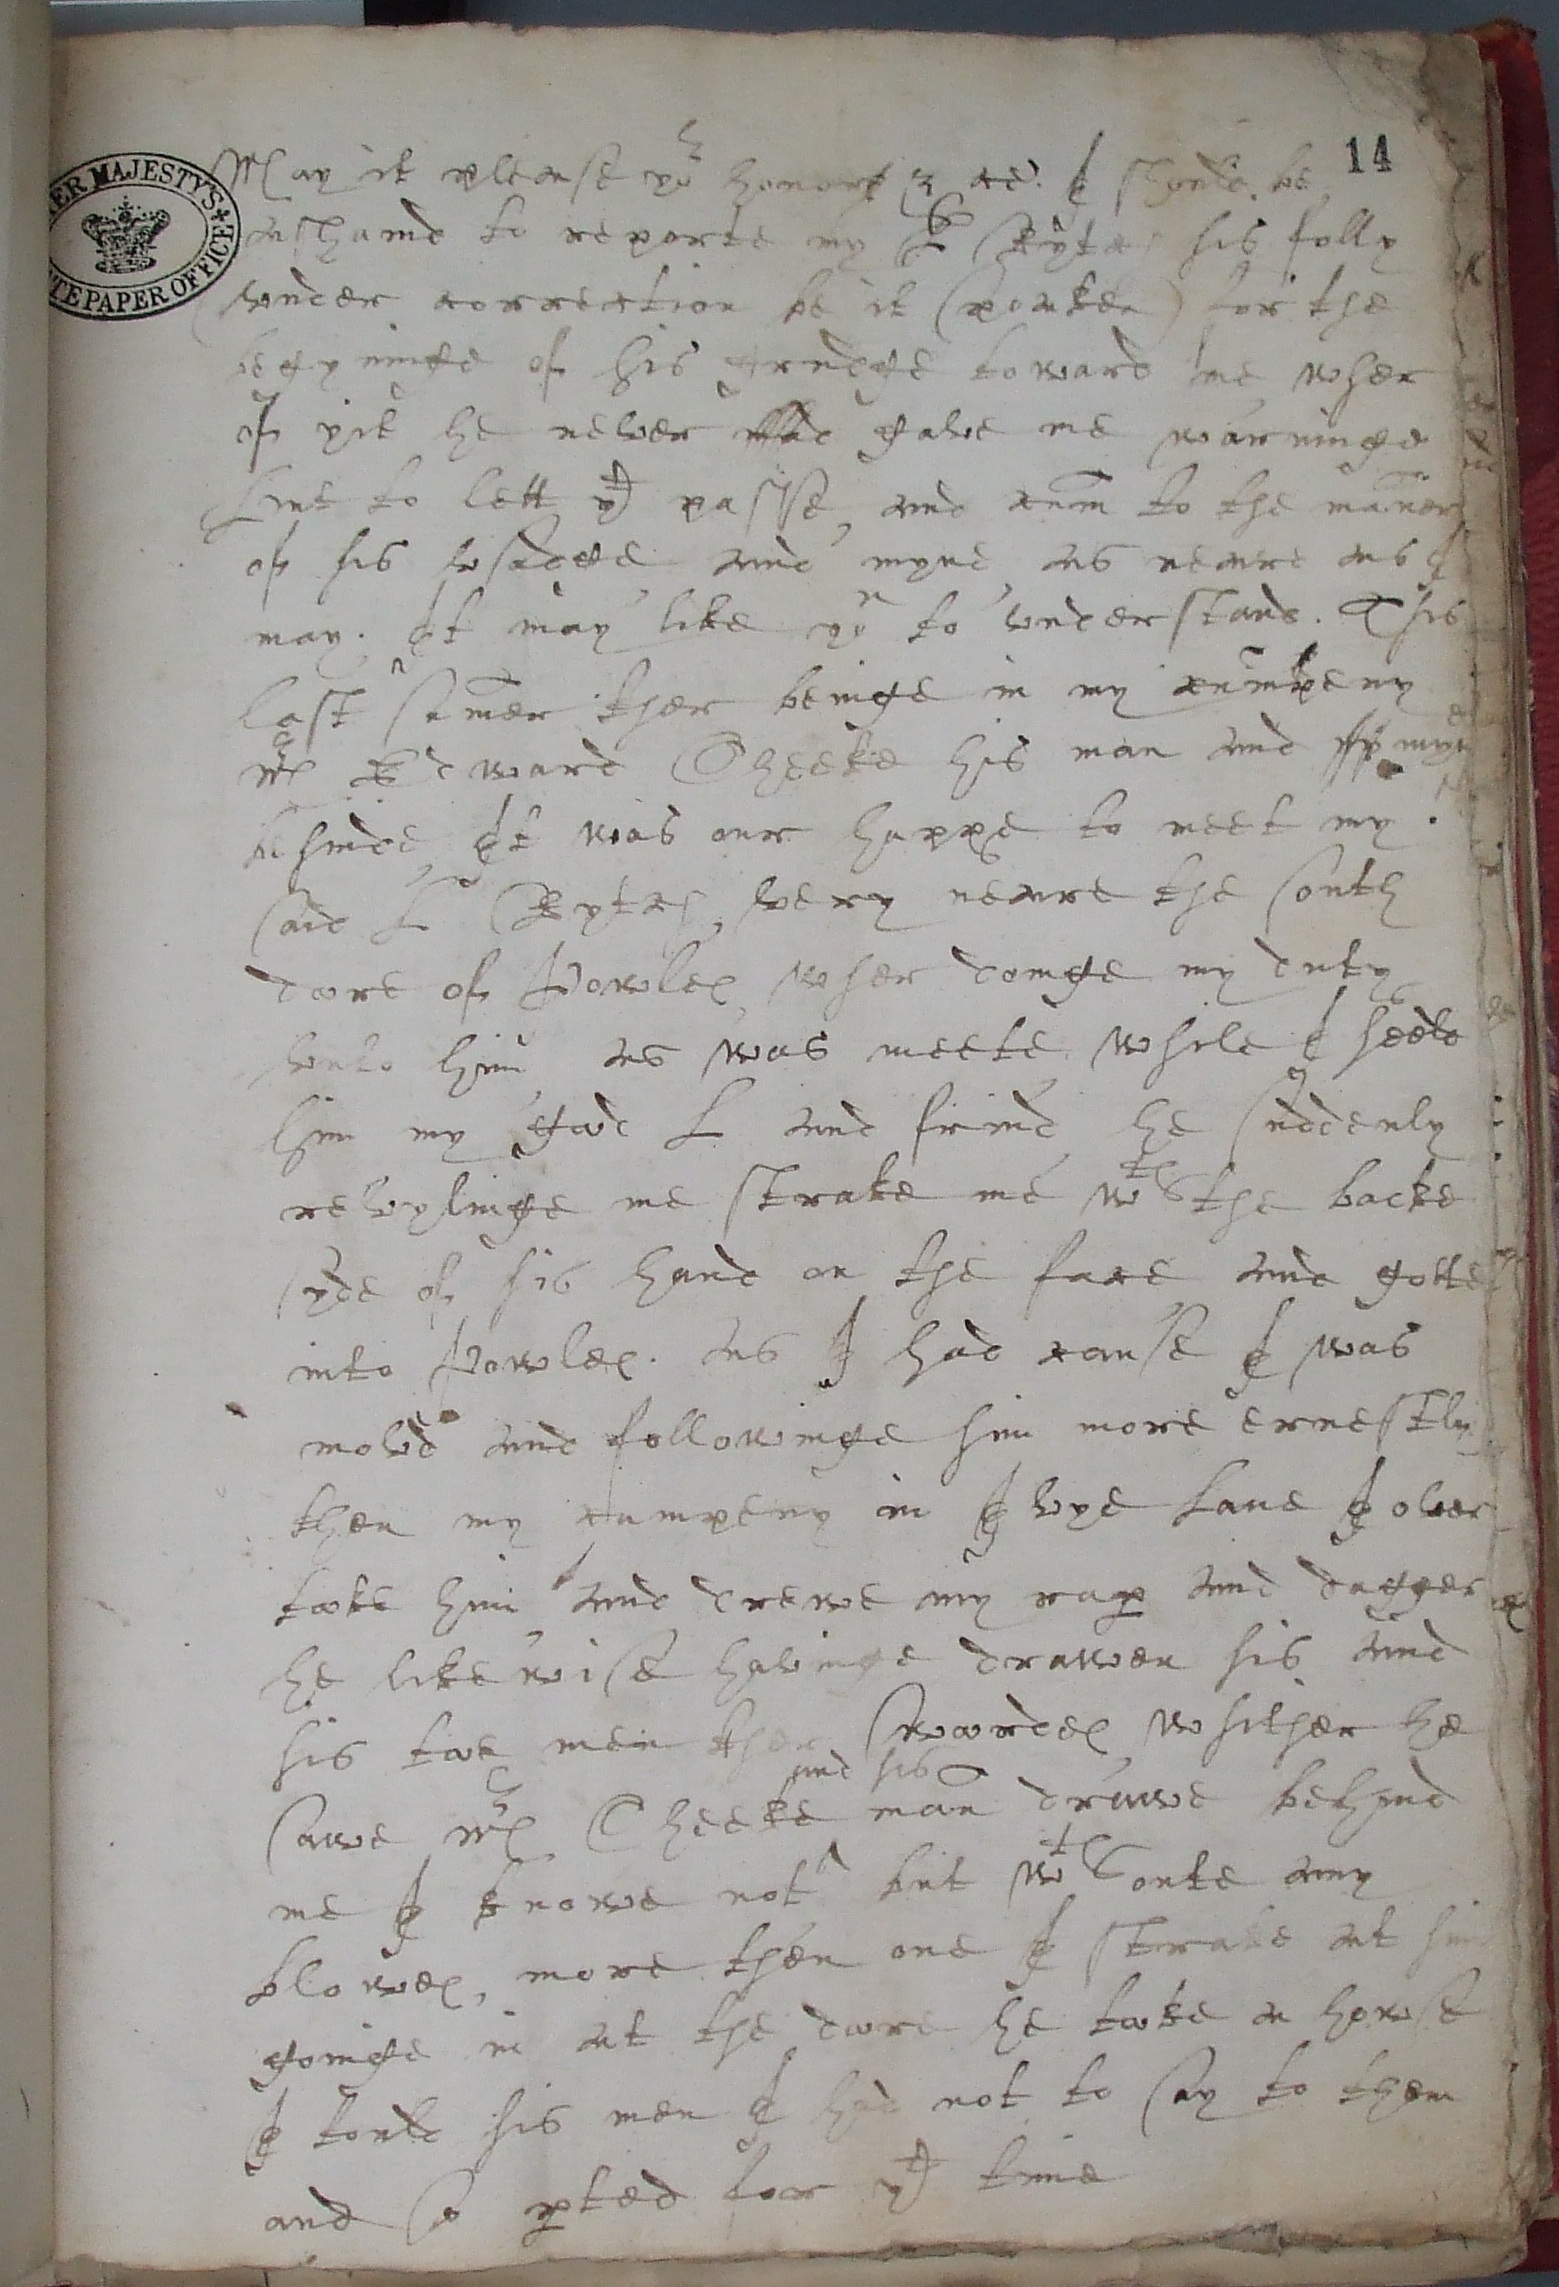 14
HER MAJESTY'S
STATE PAPER OFFICE
May it please yor honors &c. I shonde be
ashamd to reporte my L Rytch his folly
vnder correction be it spoaken) for the
begyninge of his grudge toward me wher
of yit he never gave me warninge
but to lett yt passe, and cum to the maner
of his vsadge and myne, as neare as I
may. It may like you to vnderstand. This
last sumer ther beinge in my cumpeny
Mr Edward Cheeke his man and myn
behinde, It was our happe to meet my
said L Rytch, very neare the south
dore of Powles, wher doinge my duty
vnto him, as was meete, while I heeld
him my good L and frind, he suddenly
revylinge me strake me wth the backe
syde of his hand on the face and gotte
into Powles. As I had cause I was
movd and followinge him more ernestly
then my cumpeny in Ivye Lane I over
toke him and drewe my rap and dagger
he likewise havinge drawen his and
his toe men ther swordes, whither he
and his
sawe Mr Cheeke man drawe behynd
me I knowe not but wth oute any
blowes, more then one I strake at him
goinge in at the dore he toke a howse
I tould his men I had not to say to them
and so pted for yt time